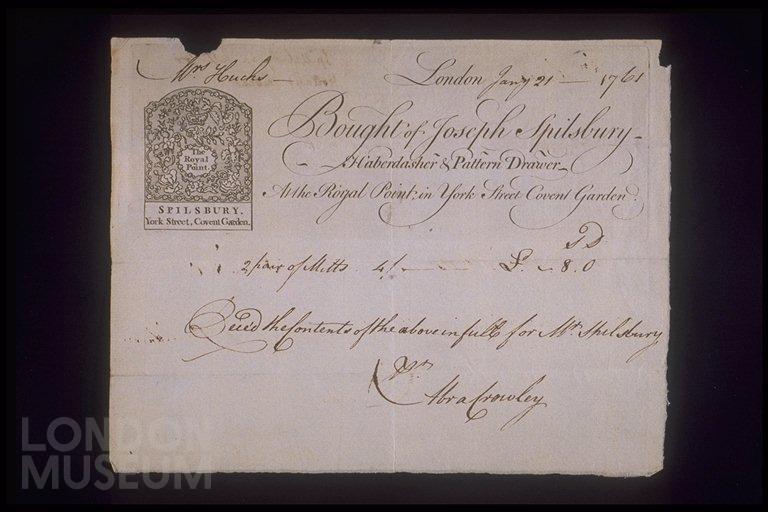 Mrs Hucks
London Jany 21 1761
Bought of Joseph Spilsbury
Haberdasher & Pattern Drawer
At the Royal Point; in York Street Covent Garden.
The
Royal
Point.
SPILSBURY.
York Street, Covent Garden.
S D
2 pair of Mitts 4/ — £. - 8. 0
Receed the Contents of the above in full for Mr. Spilsbury
Abra Crowley
LONDON
MUSEUM